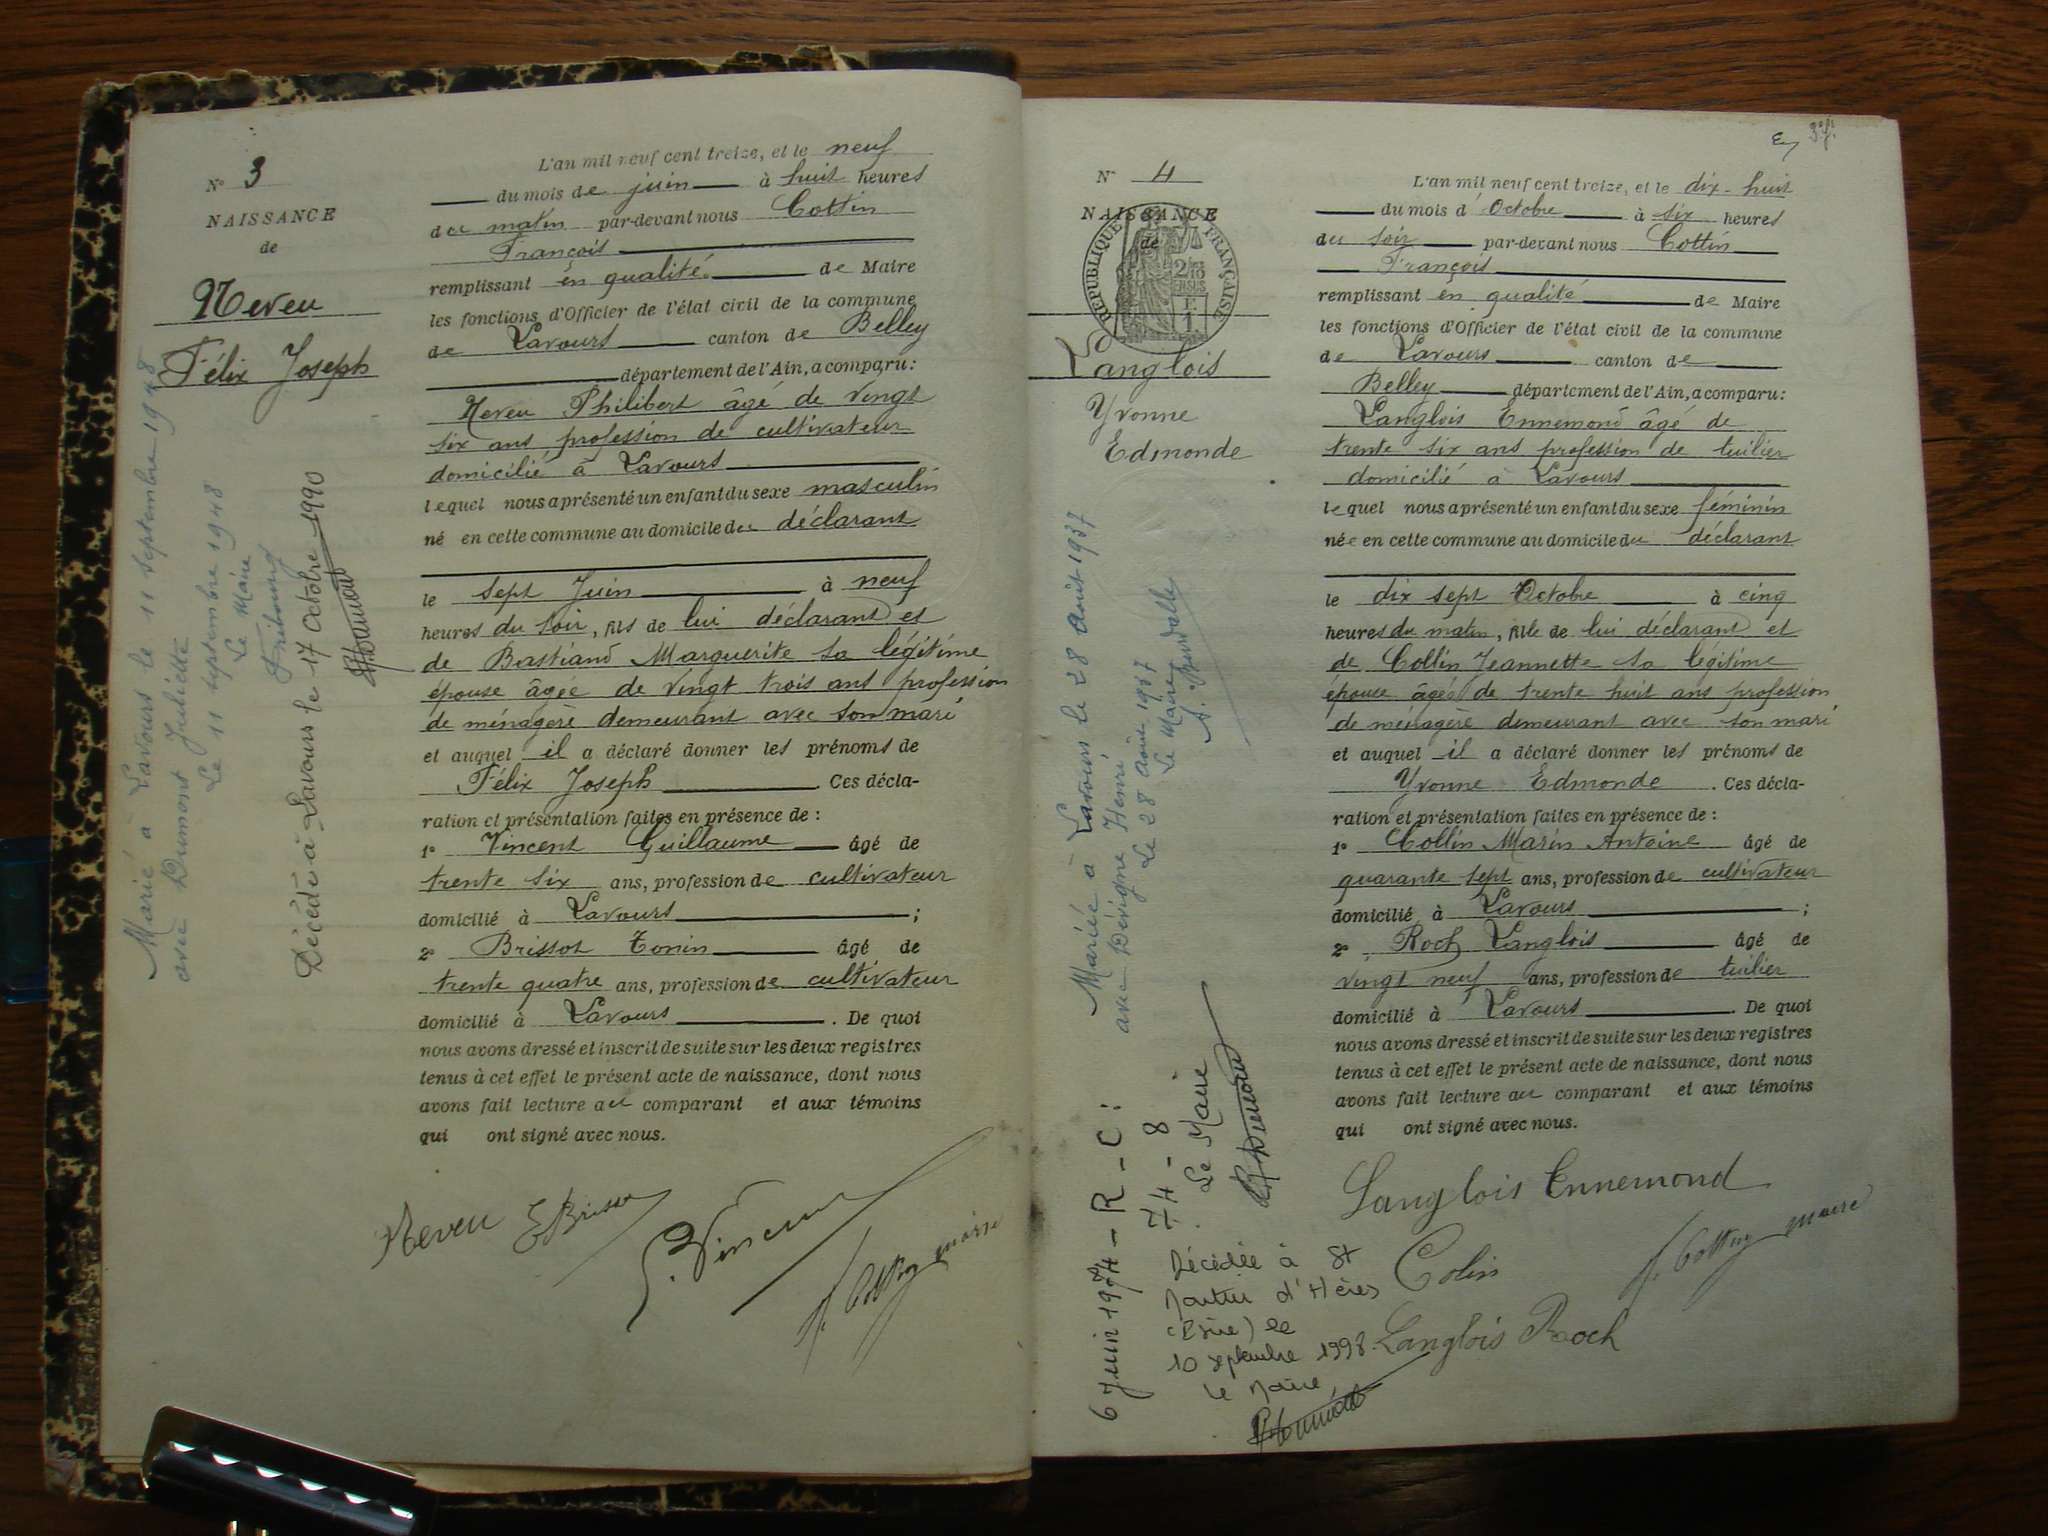 N° 3
NAISSANCE
de
Neveu
Félix Joseph
Marié à Lavours le 11 septembre 1948
avec Dumont Juliette
Le 11 septembre 1948
Le Maire
Décédé à Lavours le 17 Octobre 1990
L'an mil neuf cent treize, et le neuf
du mois de juin à huit heures
du matin par-devant nous Cottin
François
remplissant en qualité de Maire
les fonctions d'Officier de l'état civil de la commune
de Lavours canton de Belley
département de l'Ain, a comparu:
Neveu Philibert âgé de vingt
six ans profession de cultivateur
domicilié à Lavours
lequel nous a présenté un enfant du sexe masculin
né en cette commune au domicile du déclarant
le sept Juin à neuf
heures du soir, fils de lui déclarant et
de Bastiand Marguerite sa légitime
épouse âgée de vingt trois ans profession
de ménagère demeurant avec son mari
et auquel il a déclaré donner les prénoms de
Félix Joseph Ces décla-
ration et présentation faites en présence de :
1° Vincent Guillaume âgé de
trente six ans, profession de cultivateur
domicilié à Lavours ;
2° Brissot Tonin âgé de
trente quatre ans, profession de cultivateur
domicilié à Lavours . De quoi
nous avons dressé et inscrit de suite sur les deux registres
tenus à cet effet le présent acte de naissance, dont nous
avons fait lecture au comparant et aux témoins
qui ont signé avec nous.
Neveu
G. Vincent
f. Cottin maire
N° 4
NAISSANCE
de
RÉPUBLIQUE FRANÇAISE
Langlois
Yvonne
Edmonde
Mariée à Lavours le 28 Août 1937
avec Dévigne Henri
Le 28 Août 1937
Le Maire
6 Juin 1974 - R - C :
74 - 8
Le Maire
Décédée à St
Martin d'Hères
(Isère) le
10 septembre 1998
Le Maire
L'an mil neuf cent treize, et le dix-huit
du mois d'Octobre à six heures
du soir par-devant nous Cottin
François
remplissant en qualité de Maire
les fonctions d'Officier de l'état civil de la commune
de Lavours canton de
Belley département de l'Ain, a comparu:
Langlois Ennemond âgé de
trente six ans profession de tuilier
domicilié à Lavours
lequel nous a présenté un enfant du sexe féminin
née en cette commune au domicile du déclarant
le dix sept Octobre à cinq
heures du matin, fille de lui déclarant et
de Collin Jeannette sa légitime
épouse âgée de trente huit ans profession
de ménagère demeurant avec son mari
et auquel il a déclaré donner les prénoms de
Yvonne Edmonde . Ces décla-
ration et présentation faites en présence de :
1° Collin Marin Antoine âgé de
quarante sept ans, profession de cultivateur
domicilié à Lavours ;
2° Roch Langlois âgé de
vingt neuf ans, profession de tuilier
domicilié à Lavours . De quoi
nous avons dressé et inscrit de suite sur les deux registres
tenus à cet effet le présent acte de naissance, dont nous
avons fait lecture au comparant et aux témoins
qui ont signé avec nous.
Langlois Ennemond
Colin
f. Cottin maire
Langlois Roch